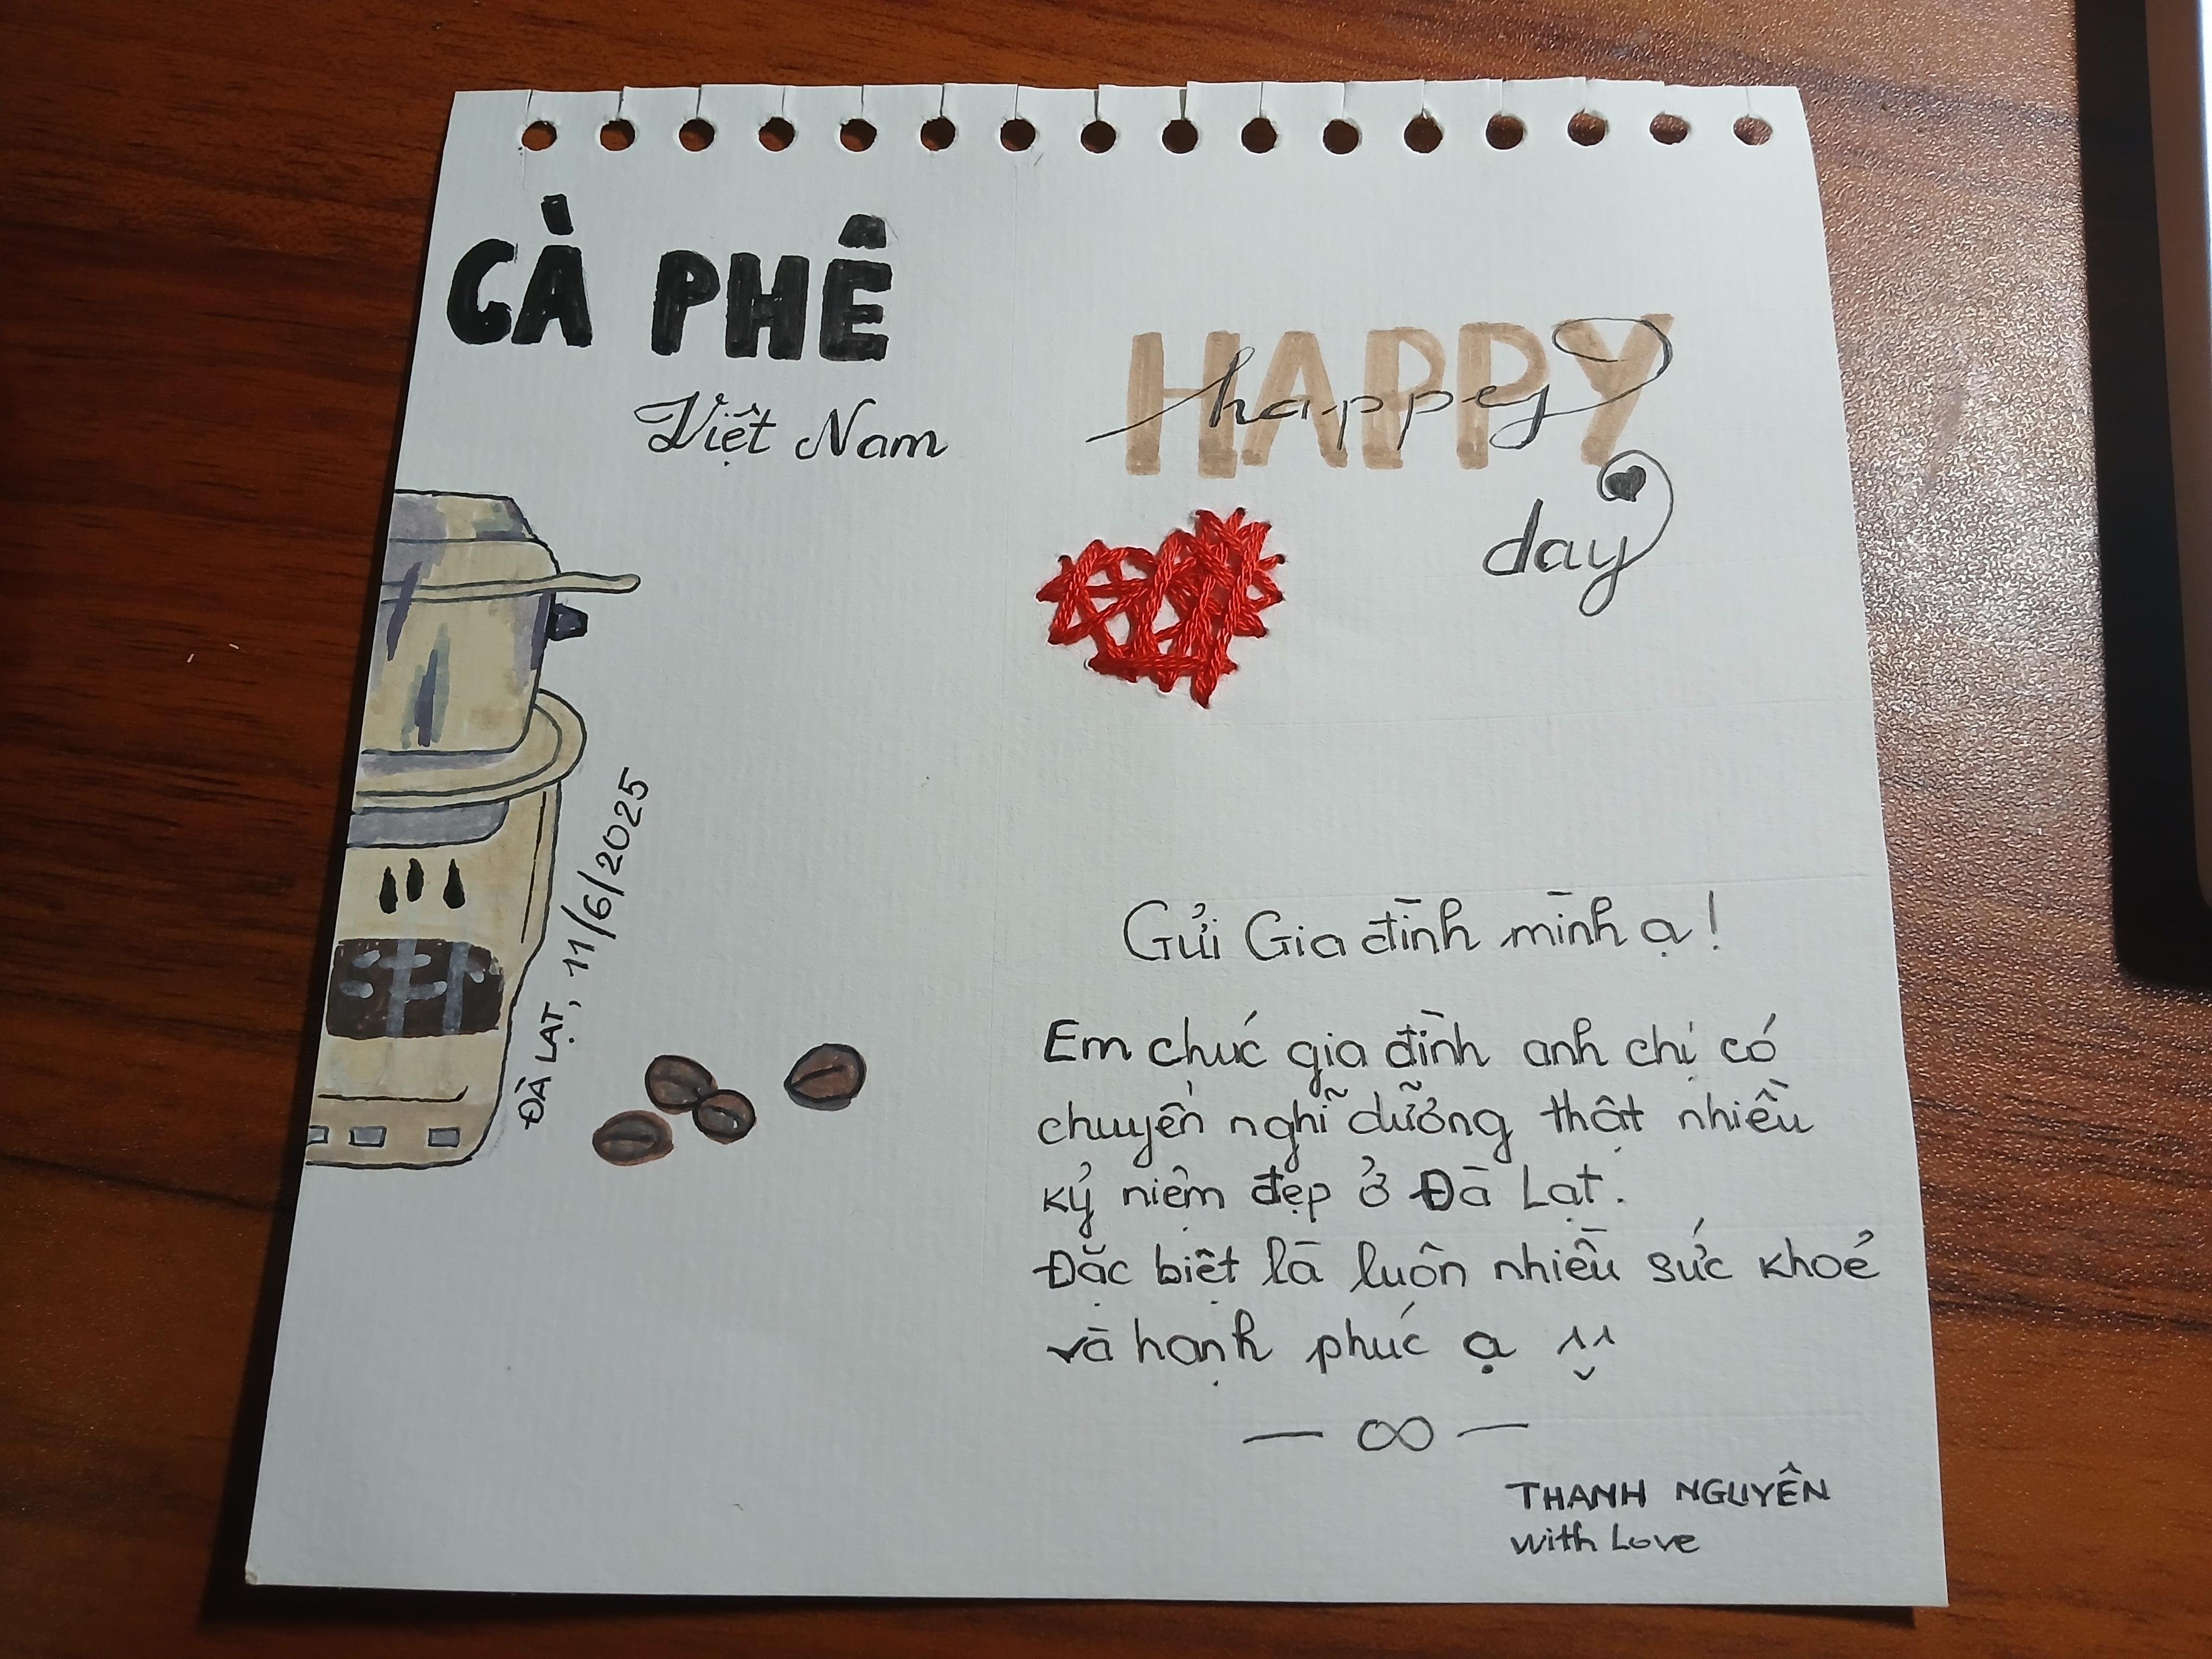 CÀ PHÊ
Việt Nam
ĐÀ LẠT, 11/6/2025
HAPPY
happy
day
Gửi Gia đình mình ạ!
Em chúc gia đình anh chị có
chuyến nghĩ dưỡng thật nhiều
kỷ niệm đẹp ở Đà Lạt.
Đặc biệt là luôn nhiều sức khoẻ
và hạnh phúc ạ ^^
— ∞ —
THANH NGUYÊN
with Love